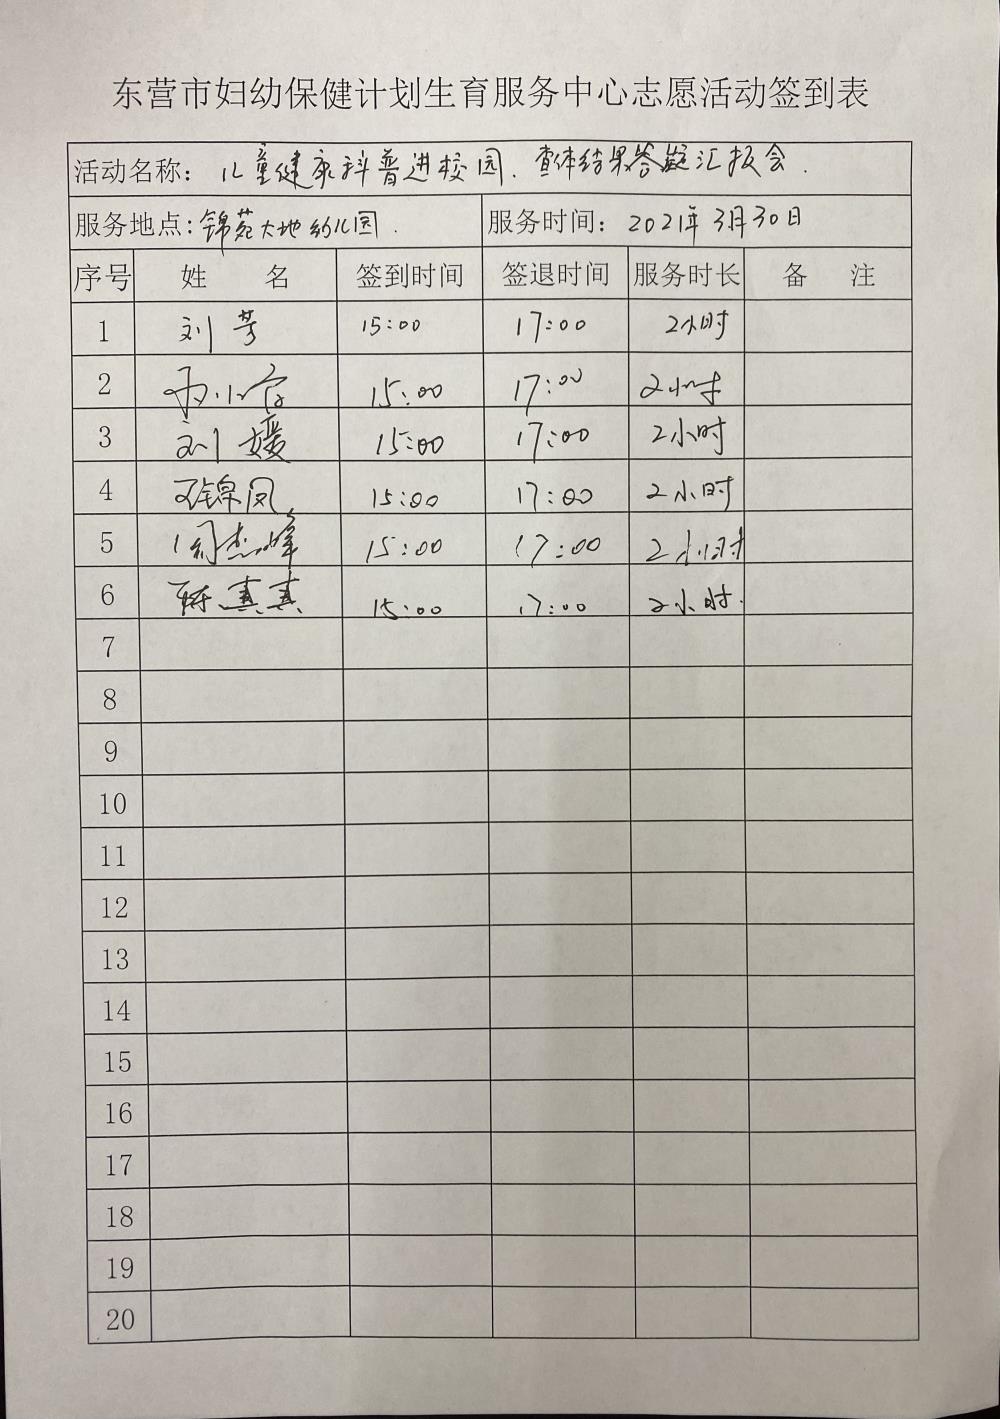 东营市妇幼保健计划生育服务中心志愿活动签到表
活动名称：儿童健康科普进校园、查体结果答疑汇报会.
服务地点：锦苑大地幼儿园. 服务时间：2021年3月30日
序号 姓 名 签到时间 签退时间 服务时长 备 注
1 刘芳 15:00 17:00 2小时
2 15:00 17:00 2小时
3 刘媛 15:00 17:00 2小时
4 王锦凤 15:00 17:00 2小时
5 周杰峰 15:00 17:00 2小时
6 陈真真 15:00 17:00 2小时.
7
8
9
10
11
12
13
14
15
16
17
18
19
20